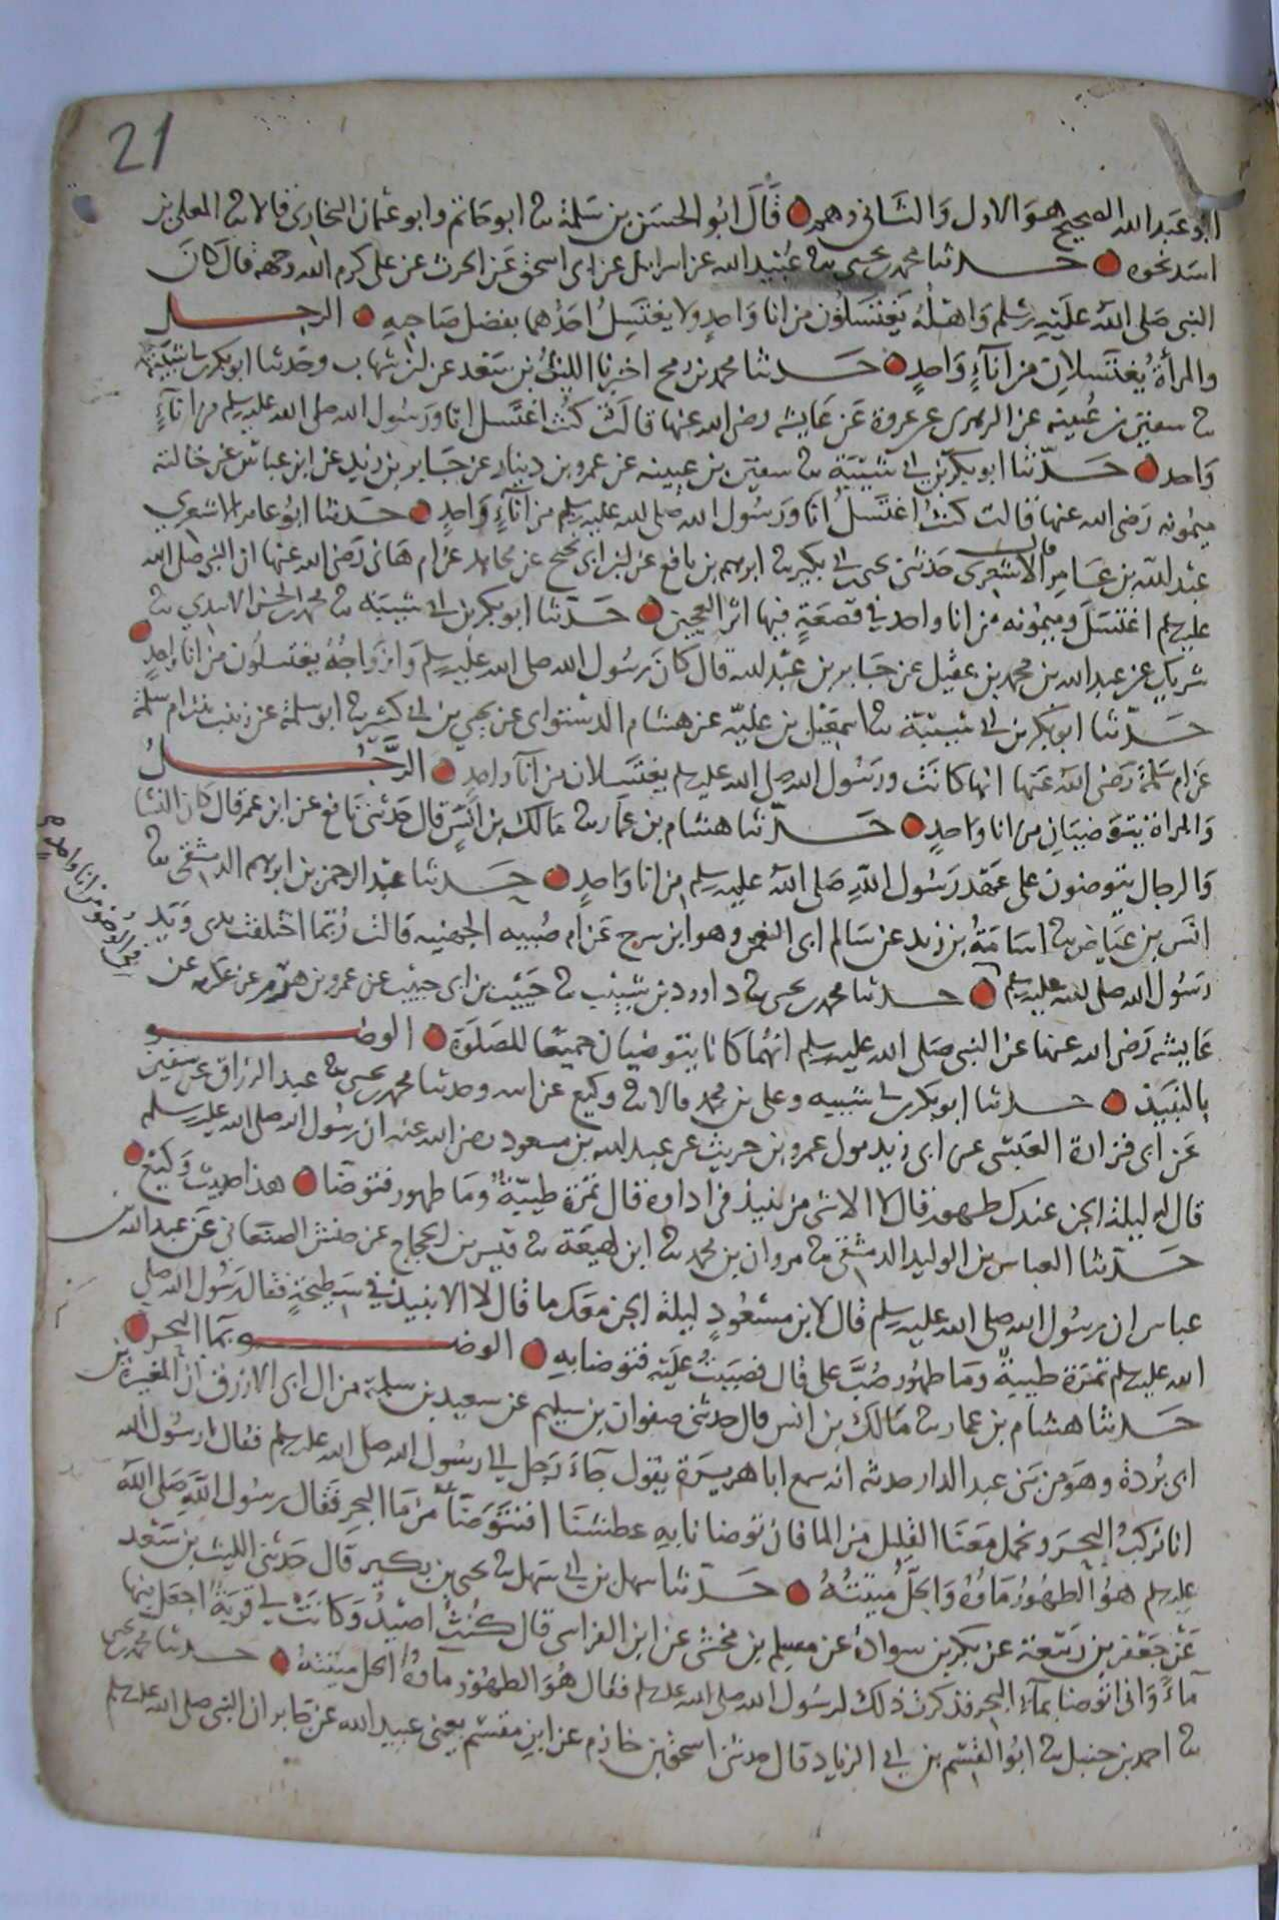 21
ابو عبد الله الصحيح هو الاول والثانى وهم قال ابو الحسن بن سلمة ثنا ابو حاتم وابو عثمان البخارى قالا ثنا المعلى بن
اسد نحوه حدثنا محمد بن يحيى ثنا عبيد الله عن اسرائيل عن ابى اسحق عن الحرث عن على كرم الله وجهه قال كان
النبى صلى الله عليه وسلم واهله يغتسلون من انا واحد ولا يغتسل احدهما بفضل صاحبه الرجل
والمرأة يغتسلان من انآء واحد حدثنا محمد بن رمح اخبرنا الليث بن سعد عن ابن شهاب وحدثنا ابو بكر بن ابى شيبة
ثنا سفين بن عيينه عن الزهرى عن عروة عن عايشه رضى الله عنها قالت كنت اغتسل انا ورسول الله صلى الله عليه وسلم من انآء
واحد حدثنا ابو بكر بن ابى شيبة ثنا سفين بن عيينه عن عمرو بن دينار عن جابر بن زيد عن ابن عباس عن خالته
ميمونه رضى الله عنها قالت كنت اغتسل انا ورسول الله صلى الله عليه وسلم من انآء واحد حدثنا ابو عامر الاشعري
عبد الله بن عامر الاشعرى حدثنى يحيى بن ابى بكير ثنا ابرهيم بن نافع عن ابن ابى نجيح عن مجاهد عن ام هانى رضى الله عنها ان النبى صلى الله
عليه وسلم اغتسل وميمونه من انا واحد في قصعة فيها اثر العجين حدثنا ابو بكر بن ابى شيبة ثنا محمد بن الحسن الاسدي ثنا
شريك عن عبد الله بن محمد بن عقيل عن جابر بن عبد الله قال كان رسول الله صلى الله عليه وسلم وازواجه يغتسلون من انا واحد
حدثنا ابو بكر بن ابى شيبة ثنا اسمعيل بن عليه عن هشام الدستواى عن يحيى بن ابى كثير ثنا ابو سلمة عن زينب بنت ام سلمة
عن ام سلمة رضى الله عنها انها كانت ورسول الله صلى الله عليه وسلم يغتسلان من انآ واحد الرجل
والمراة يتوضيان من انا واحد حدثنا هشام بن عمار ثنا مالك بن انس قال حدثنى نافع عن ابن عمر قال كان النسا
والرجال يتوضون على عهد رسول الله صلى الله عليه وسلم من انا واحد حدثنا عبد الرحمن بن ابرهيم الدمشقى ثنا
انس بن عياض ثنا اسامة بن زيد عن سالم ابى النعمن وهو ابن سرج عن ام صبيه الجهنيه قالت ربما اختلفت يدى ويد
رسول الله صلى الله عليه وسلم حدثنا محمد بن يحيى ثنا داوود بن شبيب ثنا حبيب بن ابى حبيب عن عمرو بن هرم عن عكرمه عن
فى الوضو من انا واحد
عايشه رضى الله عنها عن النبى صلى الله عليه وسلم انهما كانا يتوضيان جميعا للصلوة الوضو
بالنبيذ حدثنا ابو بكر بن ابى شيبه وعلى بن محمد قالا ثنا وكيع عن ابيه وحدثنا محمد بن يحيى ثنا عبد الرزاق عن سفين
عن ابى فزارة العبسى عن ابى زيد مولى عمرو بن حريث عن عبد الله بن مسعود رضى الله عنه ان رسول الله صلى الله عليه وسلم
قال له ليلة الجن عندك طهور قال لا الا شى من نبيذ فى اداوة قال تمرة طيبة وما طهور فتوضا هذا حديث وكيع
حدثنا العباس بن الوليد الدمشقى ثنا مروان بن محمد ثنا ابن لهيعة ثنا قيس بن الحجاج عن حنش الصنعانى عن عبد الله بن
عباس ان رسول الله صلى الله عليه وسلم قال لابن مسعود ليلة الجن معك ما قال لا الا نبيذ في سطيحة فقال رسول الله صلى
الله عليه وسلم تمرة طيبة وما طهور صب على قال فصببت عليه فتوضا به الوضو بما البحر
حدثنا هشام بن عمار ثنا مالك بن انس قال حدثنى صفوان بن سليم عن سعيد بن سلمة من ال ابى الازرق ان المغيرة بن
ابى بردة وهو من بنى عبد الدار حدثه انه سمع ابا هريرة يقول جآء رجل الى رسول الله صلى الله عليه وسلم فقال يا رسول الله
انا نركب البحر ونحمل معنا القليل من الما فان توضانا به عطشنا افنتوضآ من ما البحر فقال رسول الله صلى الله
عليه وسلم هو الطهور ماوه الحل ميتته حدثنا سهل بن ابى سهل ثنا يحيى بن بكير قال حدثنى الليث بن سعد
عن جعفر بن ربيعة عن بكر بن سوادة عن مسلم بن مخشى عن ابن الفراسى قال كنت اصيد وكانت لى قربة اجعل فيها
مآء وانى اتوضا بمآء البحر فذكرت ذلك لرسول الله صلى الله عليه وسلم فقال هو الطهور مآوه الحل ميتته حدثنا محمد بن يحيى
ثنا احمد بن حنبل ثنا ابو القسم بن ابى الزناد قال حدثنى اسحق بن خازم عن ابن مقسم يعنى عبيد الله عن جابر ان النبى صلى الله عليه وسلم